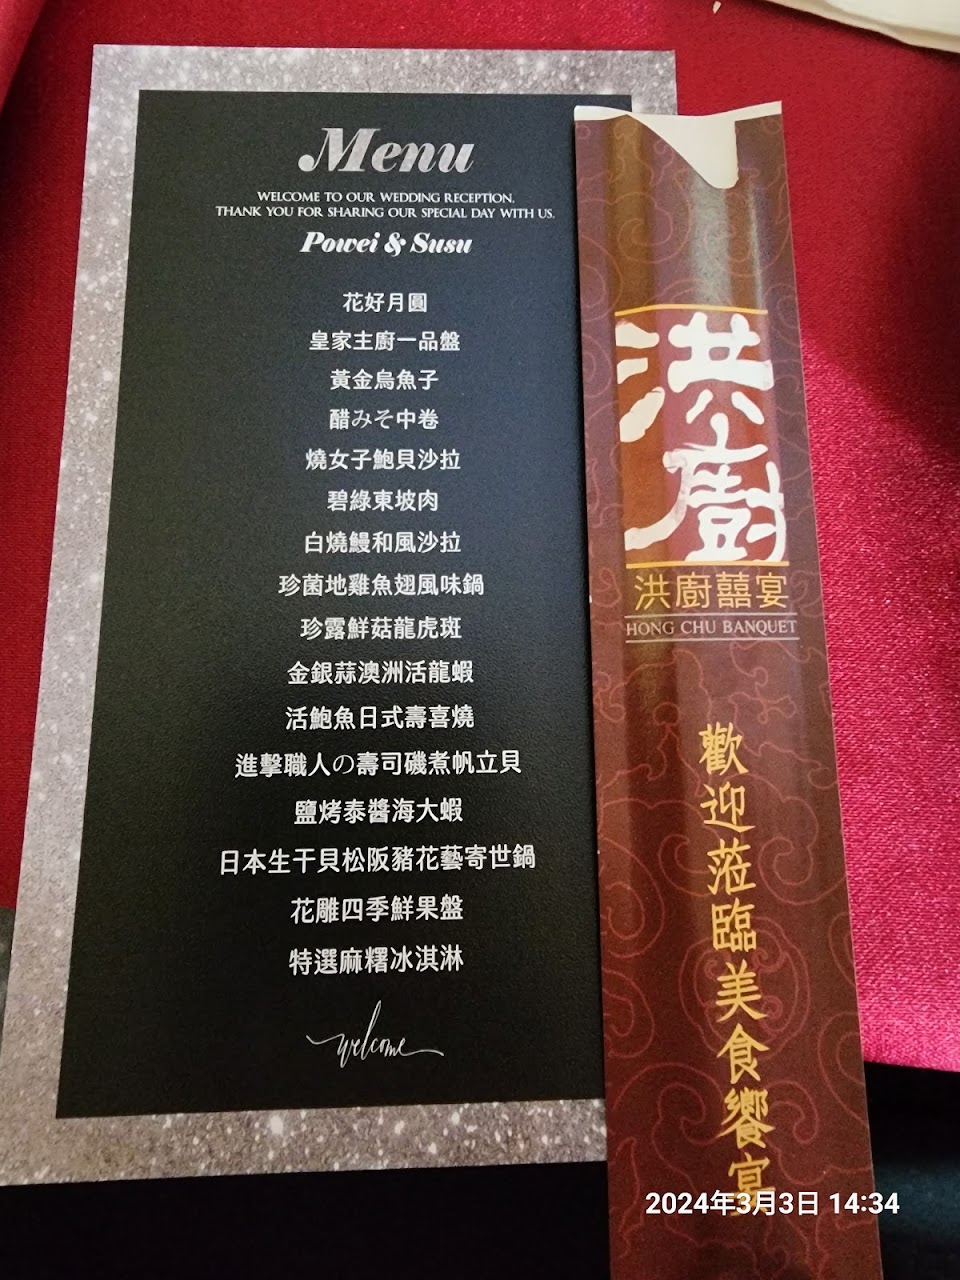 Menu
WELCOME TO OUR WEDDING RECEPTION.
THANK YOU FOR SHARING OUR SPECIAL DAY WITH US.
Powei & Susu
花好月圓
皇家主廚一品盤
黃金烏魚子
醋みそ中卷
燒女子鮑貝沙拉
碧綠東坡肉
白燒鰻和風沙拉
珍菌地雞魚翅風味鍋
珍露鮮菇龍虎斑
金銀蒜澳洲活龍蝦
活鮑魚日式壽喜燒
進擊職人の壽司磯煮帆立貝
鹽烤泰醬海大蝦
日本生干貝松阪豬花藝寄世鍋
花雕四季鮮果盤
特選麻糬冰淇淋
welcome
洪廚
洪廚囍宴
HONG CHU BANQUET
歡迎蒞臨美食饗宴
2024年3月3日 14:34